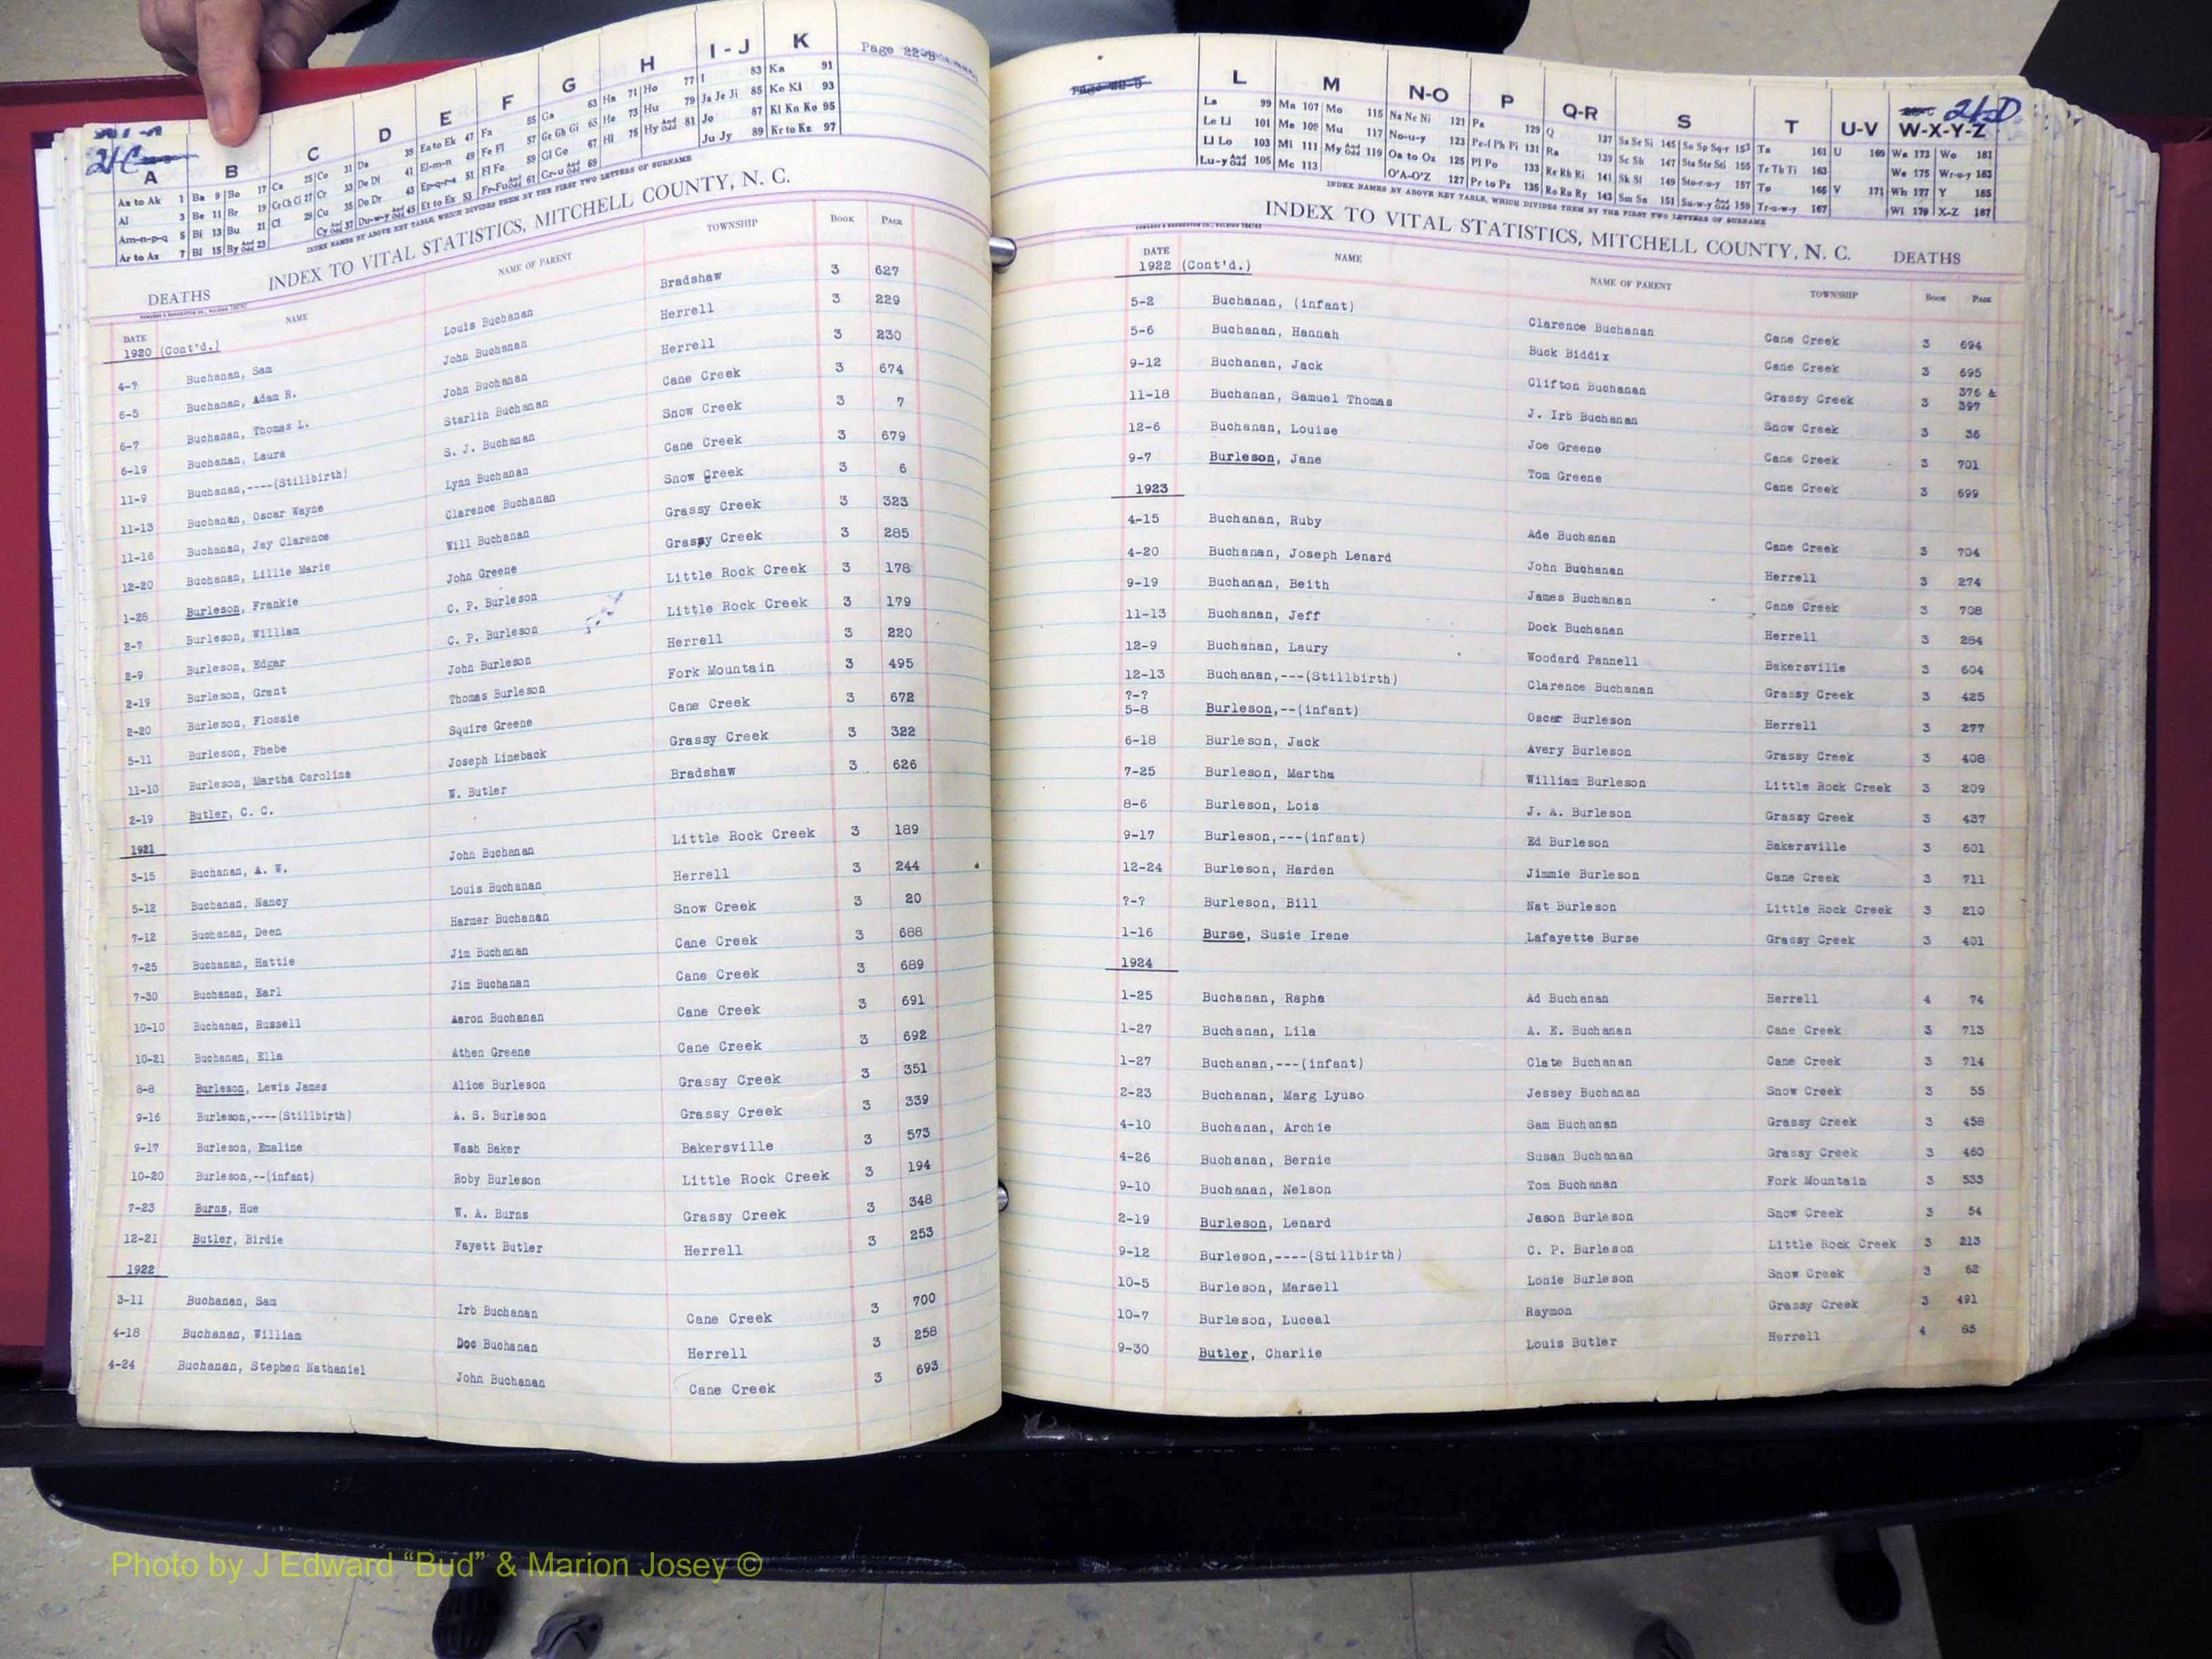 21C
Page 22-B
A B C D E F G H I-J K
Aa to Ak 1 Ba 9 Bo 17 Ca 25 Co 31 Da 39 Ea to Ek 47 Fa 55 Ga 63 Ha 71 Ho 77 I 83 Ka 91
Al 3 Be 11 Br 19 Ce Ch Ci 27 Cr 33 De Di 41 El-m-n 49 Fe Fi 57 Ge Gh Gi 65 He 73 Hu 79 Ja Je Ji 85 Ke Ki 93
Am-n-p-q 5 Bi 13 Bu 21 Cl 29 Cu 35 Do Dr 43 Ep-q-r-s 51 Fl Fo 59 Gl Go 67 Hi 75 Hy And Odd 81 Jo 87 Kl Kn Ko 95
Ar to Az 7 Bl 15 By And Odd 23 Cy And Odd 37 Du-w-y And Odd 45 Et to Ez 53 Fr-Fu And Odd 61 Gr-u And Odd 69 Ju Jy 89 Kr to Kz 97
INDEX NAMES BY ABOVE KEY TABLE, WHICH DIVIDES THEM BY THE FIRST TWO LETTERS OF SURNAME
DEATHS INDEX TO VITAL STATISTICS, MITCHELL COUNTY, N. C.
DATE NAME NAME OF PARENT TOWNSHIP BOOK PAGE
1920 (Cont'd.)
4-? Buchanan, Sam Louis Buchanan Bradshaw 3 627
6-5 Buchanan, Adam R. John Buchanan Herrell 3 229
6-7 Buchanan, Thomas L. John Buchanan Herrell 3 230
6-19 Buchanan, Laura Starlin Buchanan Cane Creek 3 674
11-9 Buchanan,----(Stillbirth) S. J. Buchanan Snow Creek 3 7
11-13 Buchanan, Oscar Wayne Lynn Buchanan Cane Creek 3 679
11-16 Buchanan, Jay Clarence Clarence Buchanan Snow Creek 3 6
12-20 Buchanan, Lillie Marie Will Buchanan Grassy Creek 3 323
1-28 Burleson, Frankie John Greene Grassy Creek 3 285
2-7 Burleson, William C. P. Burleson Little Rock Creek 3 178
2-9 Burleson, Edgar C. P. Burleson Little Rock Creek 3 179
2-19 Burleson, Grant John Burleson Herrell 3 220
2-20 Burleson, Flossie Thomas Burleson Fork Mountain 3 495
5-11 Burleson, Phebe Squire Greene Cane Creek 3 672
11-10 Burleson, Martha Carolina Joseph Lineback Grassy Creek 3 322
2-19 Butler, C. C. W. Butler Bradshaw 3 626
1921
3-15 Buchanan, A. W. John Buchanan Little Rock Creek 3 189
5-12 Buchanan, Nancy Louis Buchanan Herrell 3 244
7-12 Buchanan, Deen Harmer Buchanan Snow Creek 3 20
7-25 Buchanan, Hattie Jim Buchanan Cane Creek 3 688
7-30 Buchanan, Earl Jim Buchanan Cane Creek 3 689
10-10 Buchanan, Russell Aaron Buchanan Cane Creek 3 691
10-21 Buchanan, Ella Athen Greene Cane Creek 3 692
8-8 Burleson, Lewis James Alice Burleson Grassy Creek 3 351
9-16 Burleson,----(Stillbirth) A. S. Burleson Grassy Creek 3 339
9-17 Burleson, Emaline Wash Baker Bakersville 3 573
10-20 Burleson,--(infant) Roby Burleson Little Rock Creek 3 194
7-23 Burns, Hue W. A. Burns Grassy Creek 3 348
12-21 Butler, Birdie Fayett Butler Herrell 3 253
1922
3-11 Buchanan, Sam Irb Buchanan Cane Creek 3 700
4-18 Buchanan, William Doc Buchanan Herrell 3 258
4-24 Buchanan, Stephen Nathaniel John Buchanan Cane Creek 3 693
21-D
L M N-O P Q-R S T U-V W-X-Y-Z
La 99 Ma 107 Mo 115 Na Ne Ni 121 Pa 129 Q 137 Sa Se Si 145 So Sp Sq-r 153 Ta 161 U 169 Wa 173 Wo 181
Le Li 101 Me 109 Mu 117 No-u-y 123 Pe-f Ph Pi 131 Ra 139 Sc Sh 147 Sta Ste Sti 155 Te Th Ti 163 We 175 Wr-u-y 183
Ll Lo 103 Mi 111 My And Odd 119 Oa to Oz 125 Pl Po 133 Re Rh Ri 141 Sk Sl 149 Sto-r-u-y 157 To 165 V 171 Wh 177 Y 185
Lu-y And Odd 105 Mc 113 O'A-O'Z 127 Pr to Pz 135 Ro Ru Ry 143 Sm Sn 151 Su-w-y And Odd 159 Tr-u-w-y 167 Wi 179 X-Z 187
INDEX NAMES BY ABOVE KEY TABLE, WHICH DIVIDES THEM BY THE FIRST TWO LETTERS OF SURNAME
INDEX TO VITAL STATISTICS, MITCHELL COUNTY, N. C. DEATHS
DATE NAME NAME OF PARENT TOWNSHIP BOOK PAGE
1922 (Cont'd.)
5-2 Buchanan, (infant) Clarence Buchanan Cane Creek 3 694
5-6 Buchanan, Hannah Buck Biddix Cane Creek 3 695
9-12 Buchanan, Jack Clifton Buchanan Grassy Creek 3 376 & 397
11-18 Buchanan, Samuel Thomas J. Irb Buchanan Snow Creek 3 36
12-6 Buchanan, Louise Joe Greene Cane Creek 3 701
9-7 Burleson, Jane Tom Greene Cane Creek 3 699
1923
4-15 Buchanan, Ruby Ade Buchanan Cane Creek 3 704
4-20 Buchanan, Joseph Lenard John Buchanan Herrell 3 274
9-19 Buchanan, Beith James Buchanan Cane Creek 3 708
11-13 Buchanan, Jeff Dock Buchanan Herrell 3 284
12-9 Buchanan, Laury Woodard Pannell Bakersville 3 604
12-13 Buchanan,---(Stillbirth) Clarence Buchanan Grassy Creek 3 425
?-?
5-8 Burleson,--(infant) Oscar Burleson Herrell 3 277
6-18 Burleson, Jack Avery Burleson Grassy Creek 3 408
7-25 Burleson, Martha William Burleson Little Rock Creek 3 209
8-6 Burleson, Lois J. A. Burleson Grassy Creek 3 437
9-17 Burleson,---(infant) Ed Burleson Bakersville 3 601
12-24 Burleson, Harden Jimmie Burleson Cane Creek 3 711
?-? Burleson, Bill Nat Burleson Little Rock Creek 3 210
1-16 Burse, Susie Irene Lafayette Burse Grassy Creek 3 401
1924
1-25 Buchanan, Rapha Ad Buchanan Herrell 4 74
1-27 Buchanan, Lila A. E. Buchanan Cane Creek 3 713
1-27 Buchanan,---(infant) Clate Buchanan Cane Creek 3 714
2-23 Buchanan, Marg Lyuso Jessey Buchanan Snow Creek 3 55
4-10 Buchanan, Archie Sam Buchanan Grassy Creek 3 458
4-26 Buchanan, Bernie Susan Buchanan Grassy Creek 3 460
9-10 Buchanan, Nelson Tom Buchanan Fork Mountain 3 533
2-19 Burleson, Lenard Jason Burleson Snow Creek 3 54
9-12 Burleson,----(Stillbirth) C. P. Burleson Little Rock Creek 3 213
10-5 Burleson, Marsell Lonie Burleson Snow Creek 3 62
10-7 Burleson, Luceal Raymon Grassy Creek 3 491
9-30 Butler, Charlie Louis Butler Herrell 4 85
Photo by J Edward “Bud” & Marion Josey ©